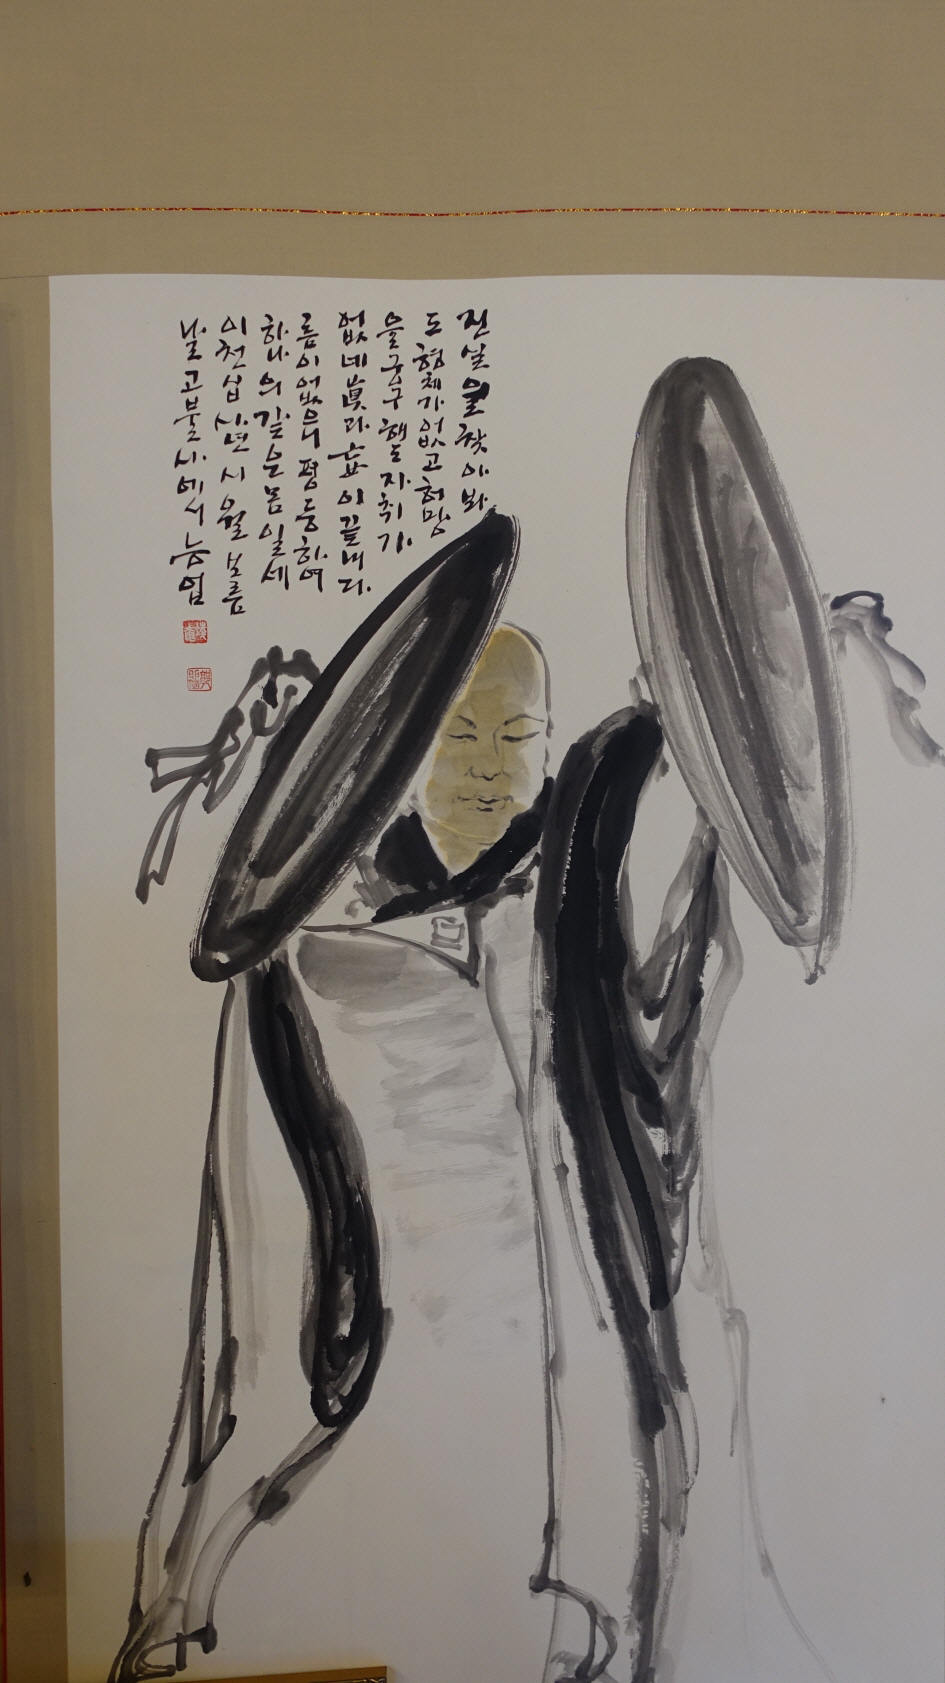 진실을 찾아봐
도 형체가 없고 허망
을 궁구해도 자취가
없네 眞과 妄이 끝내 다
름이 없으니 평등하여
하나의 같은 몸일세
이천십사년 시월 보름
날 고불사에서 능업